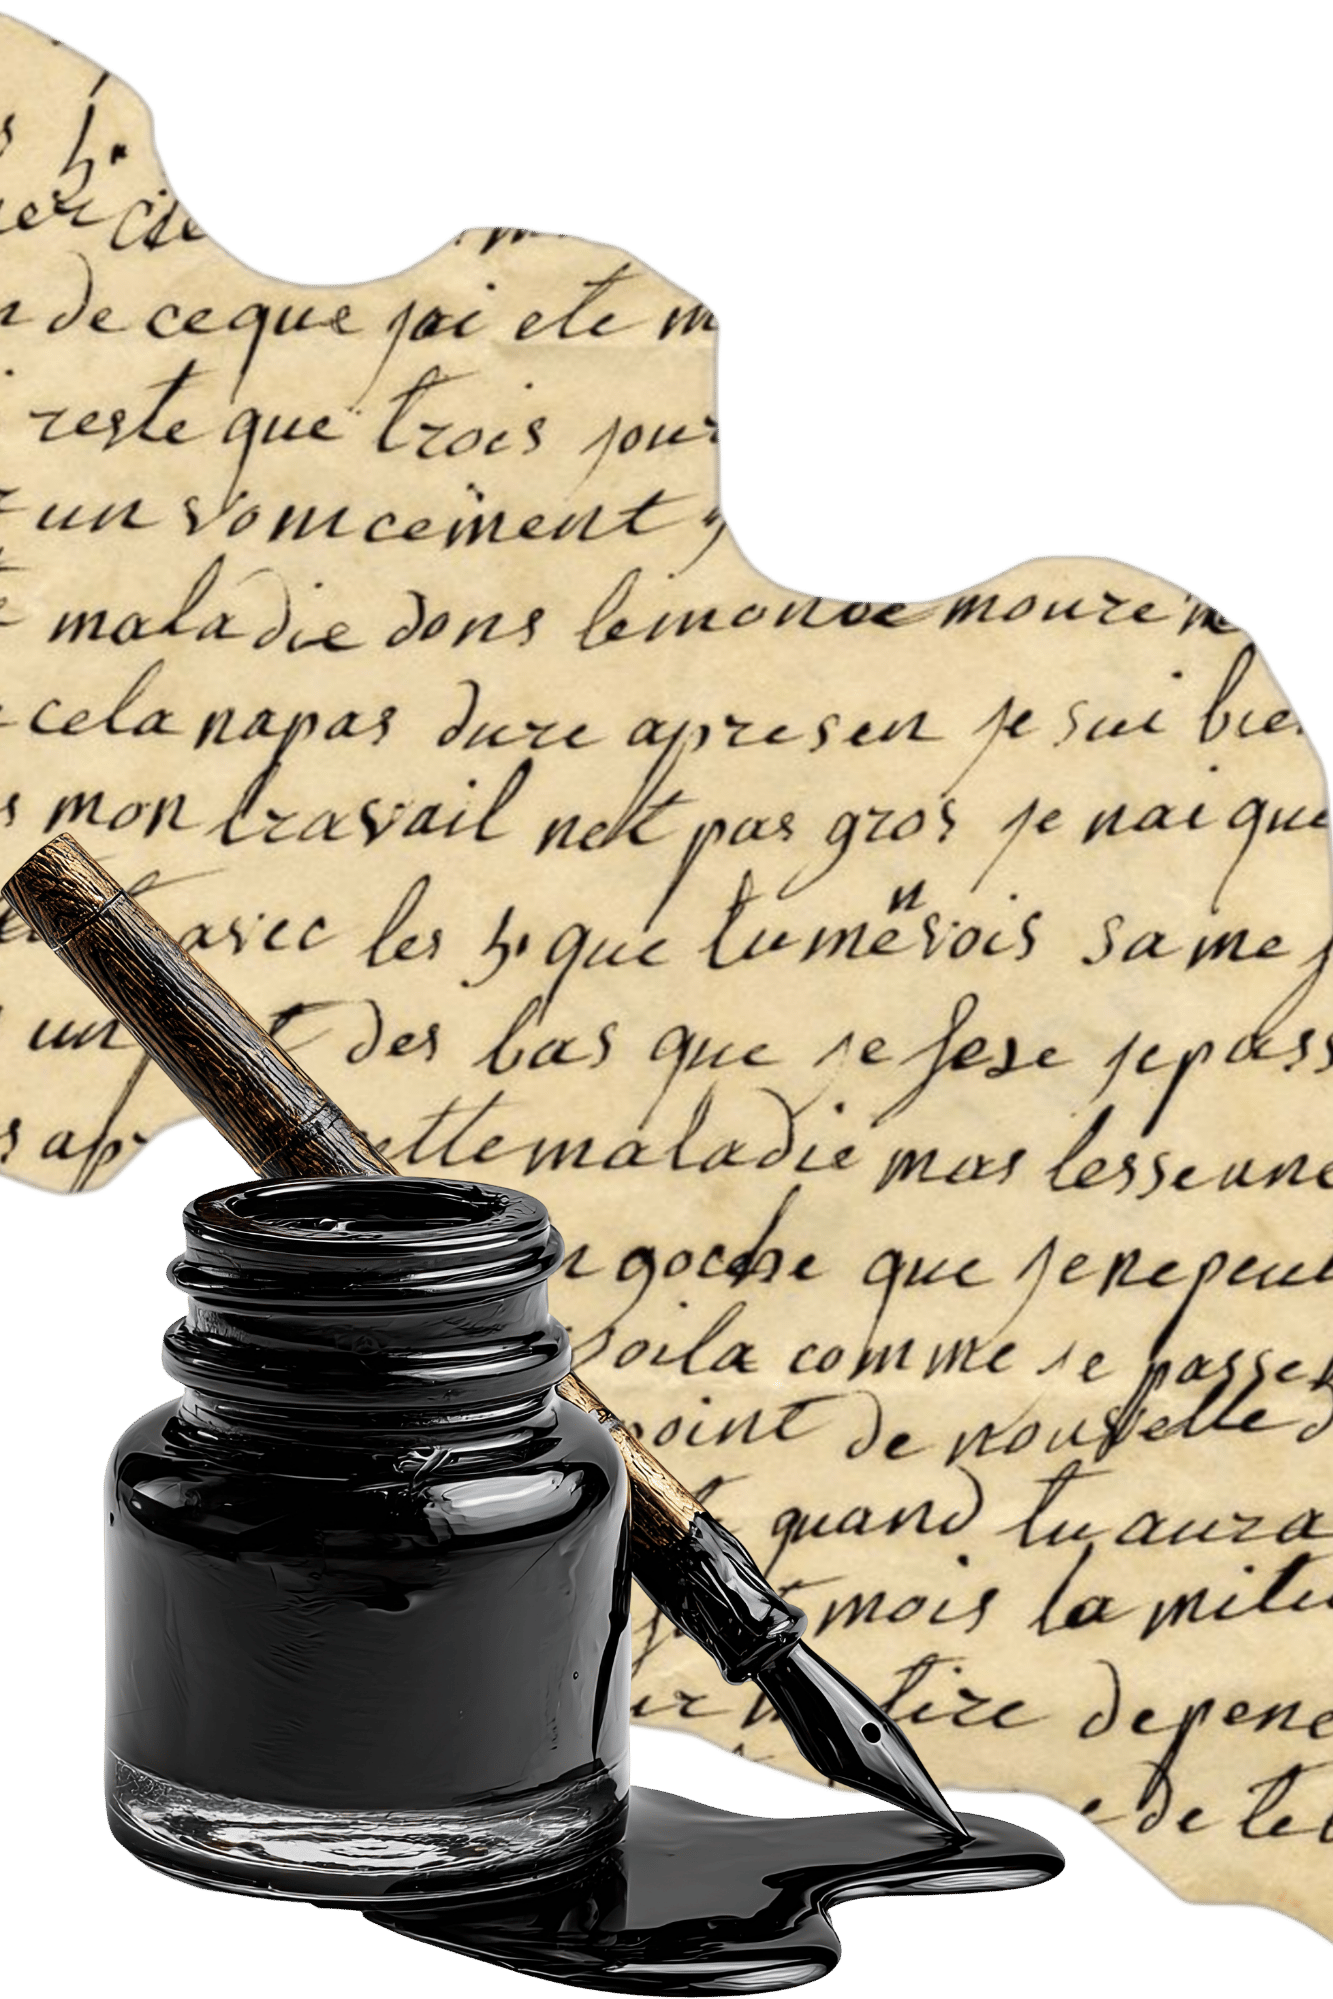 h.
de ceque jai ete m
reste que trois jour
un vomicement
maladie dons lemonde moure
cela napas dure apresen je sui bie
mon travail nest pas gros je nai que
avec les h. que tume n vois sa me
un des bas que je fese jepass
ap ettemaladie mas lesseune
goche que jenepeu
voila comme je passe
point de nouvelle d
quand tu aura
mois la mitie
tire depene
de